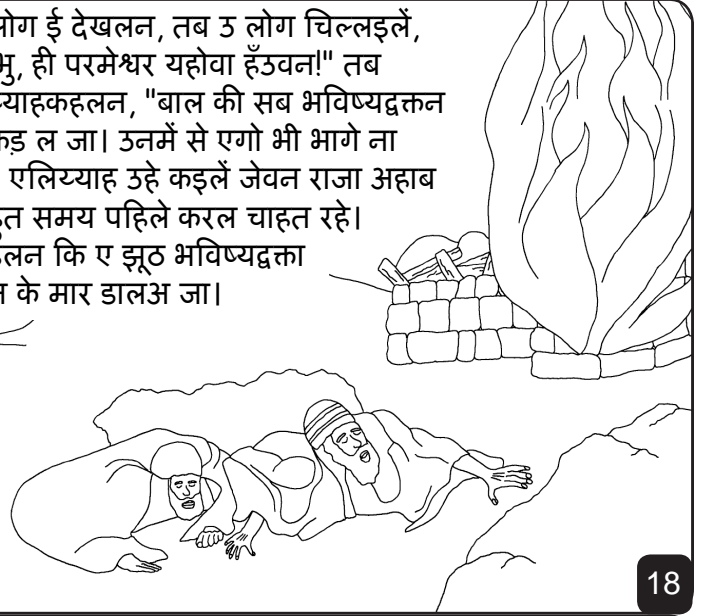 लोग ई देखलन, तब उ लोग चिल्लइलें,
ही परमेश्वर यहोवा हँउवन!" तब
"बाल की सब भविष्यद्वक्तन
ल जा। उनमें से एगो भी भागे ना
एलिय्याह उहे कइलें जेवन राजा अहाब
समय पहिले करल चाहत रहे।
कि ए झूठ भविष्यद्वक्ता
के मार डालअ जा।
18